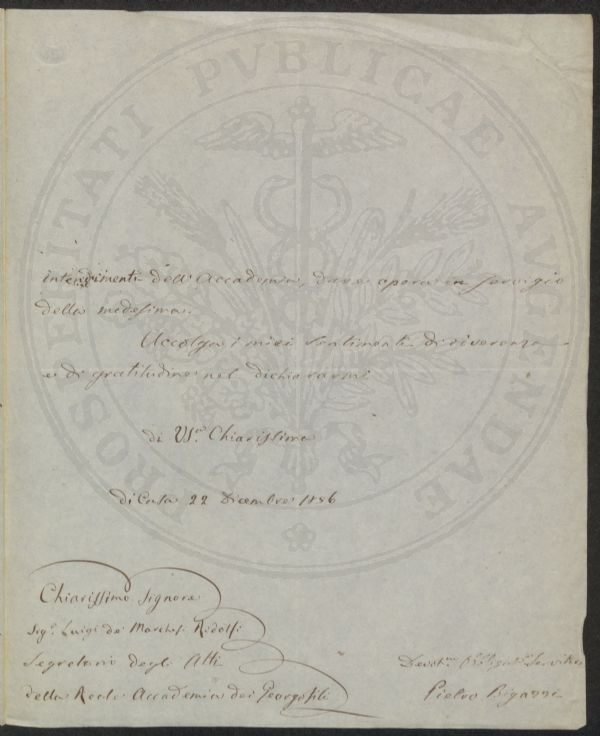 PROSPERITATI PVBLICAE AVGENDAE
intendimenti dell'Accademia, dare opera in servigio
della medesima.
Accolga i miei sentimenti di riverenza
e di gratitudine nel dichiararmi
di VS.ra Chiarissima
di Casa 22 Dicembre 1856
Chiarissimo Signore
Sig.r Luigi de' Marchesi Ridolfi
Segretario degli Atti
della Reale Accademia dei Georgofili
Devot.mo Obbligat.o Servitore
Pietro Bigazzi